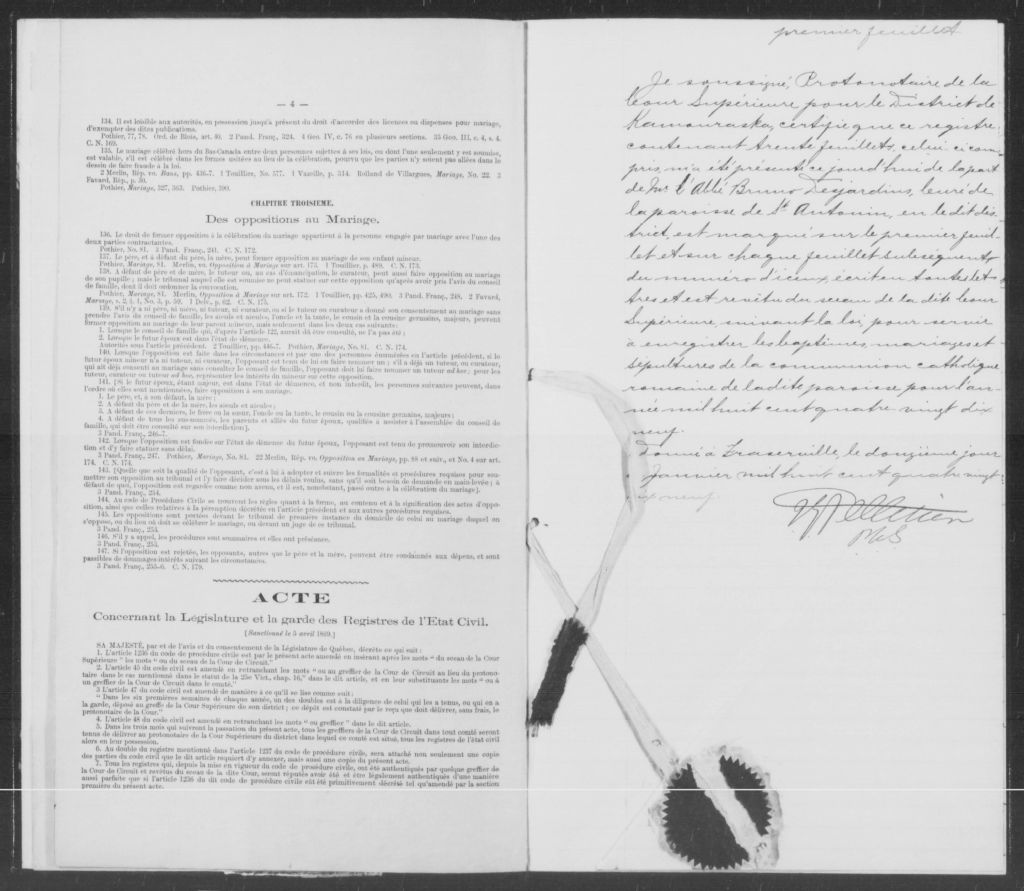 — 4 —
134. Il est loisible aux autorités, en possession jusqu'à présent du droit d'accorder des licences ou dispenses pour mariage,
d'exempter des dites publications.
Pothier, 77, 78. Ord. de Blois, art. 40. 2 Pand. Franç., 324. 4 Geo. IV, c. 76 en plusieurs sections. 35 Geo. III, c. 4, s. 4.
C. N. 169.
135. Le mariage célébré hors du Bas-Canada entre deux personnes sujettes à ses lois, ou dont l'une seulement y est soumise,
est valable, s'il est célébré dans les formes usitées au lieu de la célébration, pourvu que les parties n'y soient pas allées dans le
dessin de faire fraude à la loi.
2 Merlin, Rép. vo. Bans, pp. 436-7. 1 Touillier, No. 577. 1 Vazeille, p. 314. Rolland de Villargues, Mariage, No. 22. 3
Favard, Rép., p. 30.
Pothier, Mariage, 327, 363. Pothier, 390.
CHAPITRE TROISIEME.
Des oppositions au Mariage.
136. Le droit de former opposition à la célébration du mariage appartient à la personne engagée par mariage avec l'une des
deux parties contractantes.
Pothier, No. 81. 3 Pand. Franç., 241. C. N. 172.
137. Le père, et à défaut du père, la mère, peut former opposition au mariage de son enfant mineur.
Pothier, Mariage, 81. Merlin, vo. Opposition à Mariage sur art. 173. 1 Touillier, p. 489. C. N. 173.
138. A défaut de père et de mère, le tuteur ou, au cas d'émancipation, le curateur, peut aussi faire opposition au mariage
de son pupille ; mais le tribunal auquel elle est soumise ne peut statuer sur cette opposition qu'après avoir pris l'avis du conseil
de famille, dont il doit ordonner la convocation.
Pothier, Mariage, 81. Merlin, Opposition à Mariage sur art. 172. 1 Touillier, pp. 425, 490. 3 Pand. Franç., 248. 2 Favard,
Mariage, s. 2, § 1, No. 3, p. 59. 1 Delv., p. 62. C. N. 175.
139. S'il n'y a ni père, ni mère, ni tuteur, ni curateur, ou si le tuteur ou curateur a donné son consentement au mariage sans
prendre l'avis du conseil de famille, les aïeuls et aïeules, l'oncle et la tante, le cousin et la cousine germains, majeurs, peuvent
former opposition au mariage de leur parent mineur, mais seulement dans les deux cas suivants :
1. Lorsque le conseil de famille qui, d'après l'article 122, aurait dû être consulté, ne l'a pas été ;
2. Lorsque le futur époux est dans l'état de démence.
Autorités sous l'article précédent. 2 Touillier, pp. 446-7. Pothier, Mariage, No. 81. C. N. 174.
140. Lorsque l'opposition est faite dans les circonstances et par une des personnes énumérées en l'article précédent, si le
futur époux mineur n'a ni tuteur, ni curateur, l'opposant est tenu de lui en faire nommer un ; s'il a déjà un tuteur, ou curateur,
qui ait déjà consenti au mariage sans consulter le conseil de famille, l'opposant doit lui faire nommer un tuteur ad hoc ; pour les
tuteur, curateur ou tuteur ad hoc, représenter les intérêts du mineur sur cette opposition.
141. [Si le futur époux, étant majeur, est dans l'état de démence, et non interdit, les personnes suivantes peuvent, dans
l'ordre où elles sont mentionnées, faire opposition à son mariage.
1. Le père, et, à son défaut, la mère ;
2. A défaut du père et de la mère, les aïeuls et aïeules ;
3. A défaut de ces derniers, le frère ou la sœur, l'oncle ou la tante, le cousin ou la cousine germains, majeurs ;
4. A défaut de tous les sus-nommés, les parents et alliés du futur époux, qualifiés à assister à l'assemblée du conseil de
famille, qui doit être consulté sur son interdiction].
3 Pand. Franç., 246-7.
142. Lorsque l'opposition est fondée sur l'état de démence du futur époux, l'opposant est tenu de promouvoir son interdic-
tion et d'y faire statuer sans délai.
3 Pand. Franç., 247. Pothier, Mariage, No. 81. 22 Merlin, Rép. vo. Opposition au Mariage, pp. 88 et suiv., et No. 4 sur art.
174. C. N. 174.
143. [Quelle que soit la qualité de l'opposant, c'est à lui à adopter et suivre les formalités et procédures requises pour sou-
mettre son opposition au tribunal et l'y faire décider sous les délais voulus, sans qu'il soit besoin de demande en main-levée ; à
défaut de quoi, l'opposition est regardée comme non avenu, et il est, nonobstant, passé outre à la célébration du mariage].
3 Pand. Franç., 254.
144. Au code de Procédure Civile se trouvent les règles quant à la forme, au contenu et à la signification des actes d'oppo-
sition, ainsi que celles relatives à la péremption décrétée en l'article précédent et aux autres procédures requises.
145. Les oppositions sont portées devant le tribunal de première instance du domicile de celui au mariage duquel on
s'oppose, ou du lieu où doit se célébrer le mariage, ou devant un juge de ce tribunal.
3 Pand. Franç., 253.
146. S'il y a appel, les procédures sont sommaires et elles ont préséance.
3 Pand. Franç., 253.
147. Si l'opposition est rejetée, les opposants, autres que le père et la mère, peuvent être condamnés aux dépens, et sont
passibles de dommages-intérêts suivant les circonstances.
3 Pand. Franç., 255-6. C. N. 179.
ACTE
Concernant la Législature et la garde des Registres de l'Etat Civil.
[Sanctionné le 5 avril 1869.]
SA MAJESTÉ, par et de l'avis et du consentement de la Législature de Québec, décrète ce qui suit :
1. L'article 1236 du code de procédure civile est par le présent acte amendé en insérant après les mots " du sceau de la Cour
Supérieure " les mots " ou du sceau de la Cour de Circuit."
2. L'article 45 du code civil est amendé en retranchant les mots " ou au greffier de la Cour de Circuit au lieu du protono-
taire dans le cas mentionné dans le statut de la 25e Vict., chap. 16," dans le dit article, et en leur substituants les mots " ou à
un greffier de la Cour de Circuit dans le comté."
3 L'article 47 du code civil est amendé de manière à ce qu'il se lise comme suit :
" Dans les six premières semaines de chaque année, un des doubles est à la diligence de celui qui les a tenus, ou qui en a
la garde, déposé au greffe de la Cour Supérieure de son district ; ce dépôt est constaté par le reçu que doit délivrer, sans frais, le
protonotaire de la Cour."
4. L'article 48 du code civil est amendé en retranchant les mots " ou greffier " dans le dit article.
5. Dans les trois mois qui suivront la passation du présent acte, tous les greffiers de la Cour de Circuit dans tout comté seront
tenus de délivrer au protonotaire de la Cour Supérieure du district dans lequel ce comté est situé, tous les registres de l'état civil
alors en leur possession.
6. Au double du registre mentionné dans l'article 1237 du code de procédure civile, sera attaché non seulement une copie
des parties du code civil que le dit article requiert d'y annexer, mais aussi une copie du présent acte.
7. Tous les registres qui, depuis la mise en vigueur du code de procédure civile, ont été authentiqués par quelque greffier de
la Cour de Circuit et revêtus du sceau de la dite Cour, seront réputés avoir été et être légalement authentiqués d'une manière
aussi parfaite que si l'article 1236 du dit code de procédure civile eût été primitivement décrété tel qu'amendé par la section
première du présent acte.
premier feuillet
Je soussigné, Protonotaire de la
Cour Supérieure pour le District de
Kamouraska, certifie que ce registre,
contenant trente feuillets, celui ci com-
pris, m'a été présenté ce jourd'hui de la part
de Mr. l'Abbé Bruno Desjardins, Curé de
la paroisse de St Antonin, en le dit dis-
trict, est marqué sur le premier feuil-
let et sur chaque feuillet subséquents
du numéro d'iceux, écrit en toutes let-
tres et est revêtu du sceau de la dite Cour
Supérieure suivant la loi, pour servir
à enregistrer les baptêmes, mariages et
sépultures de la communion catholique
romaine de la dite paroisse pour l'an-
née mil huit cent quatre-vingt dix
neuf.
Donné à Fraserville, le douzième jour
Janvier mil huit cent quatre vingt
ix neuf.
Pelletier
P.C.S